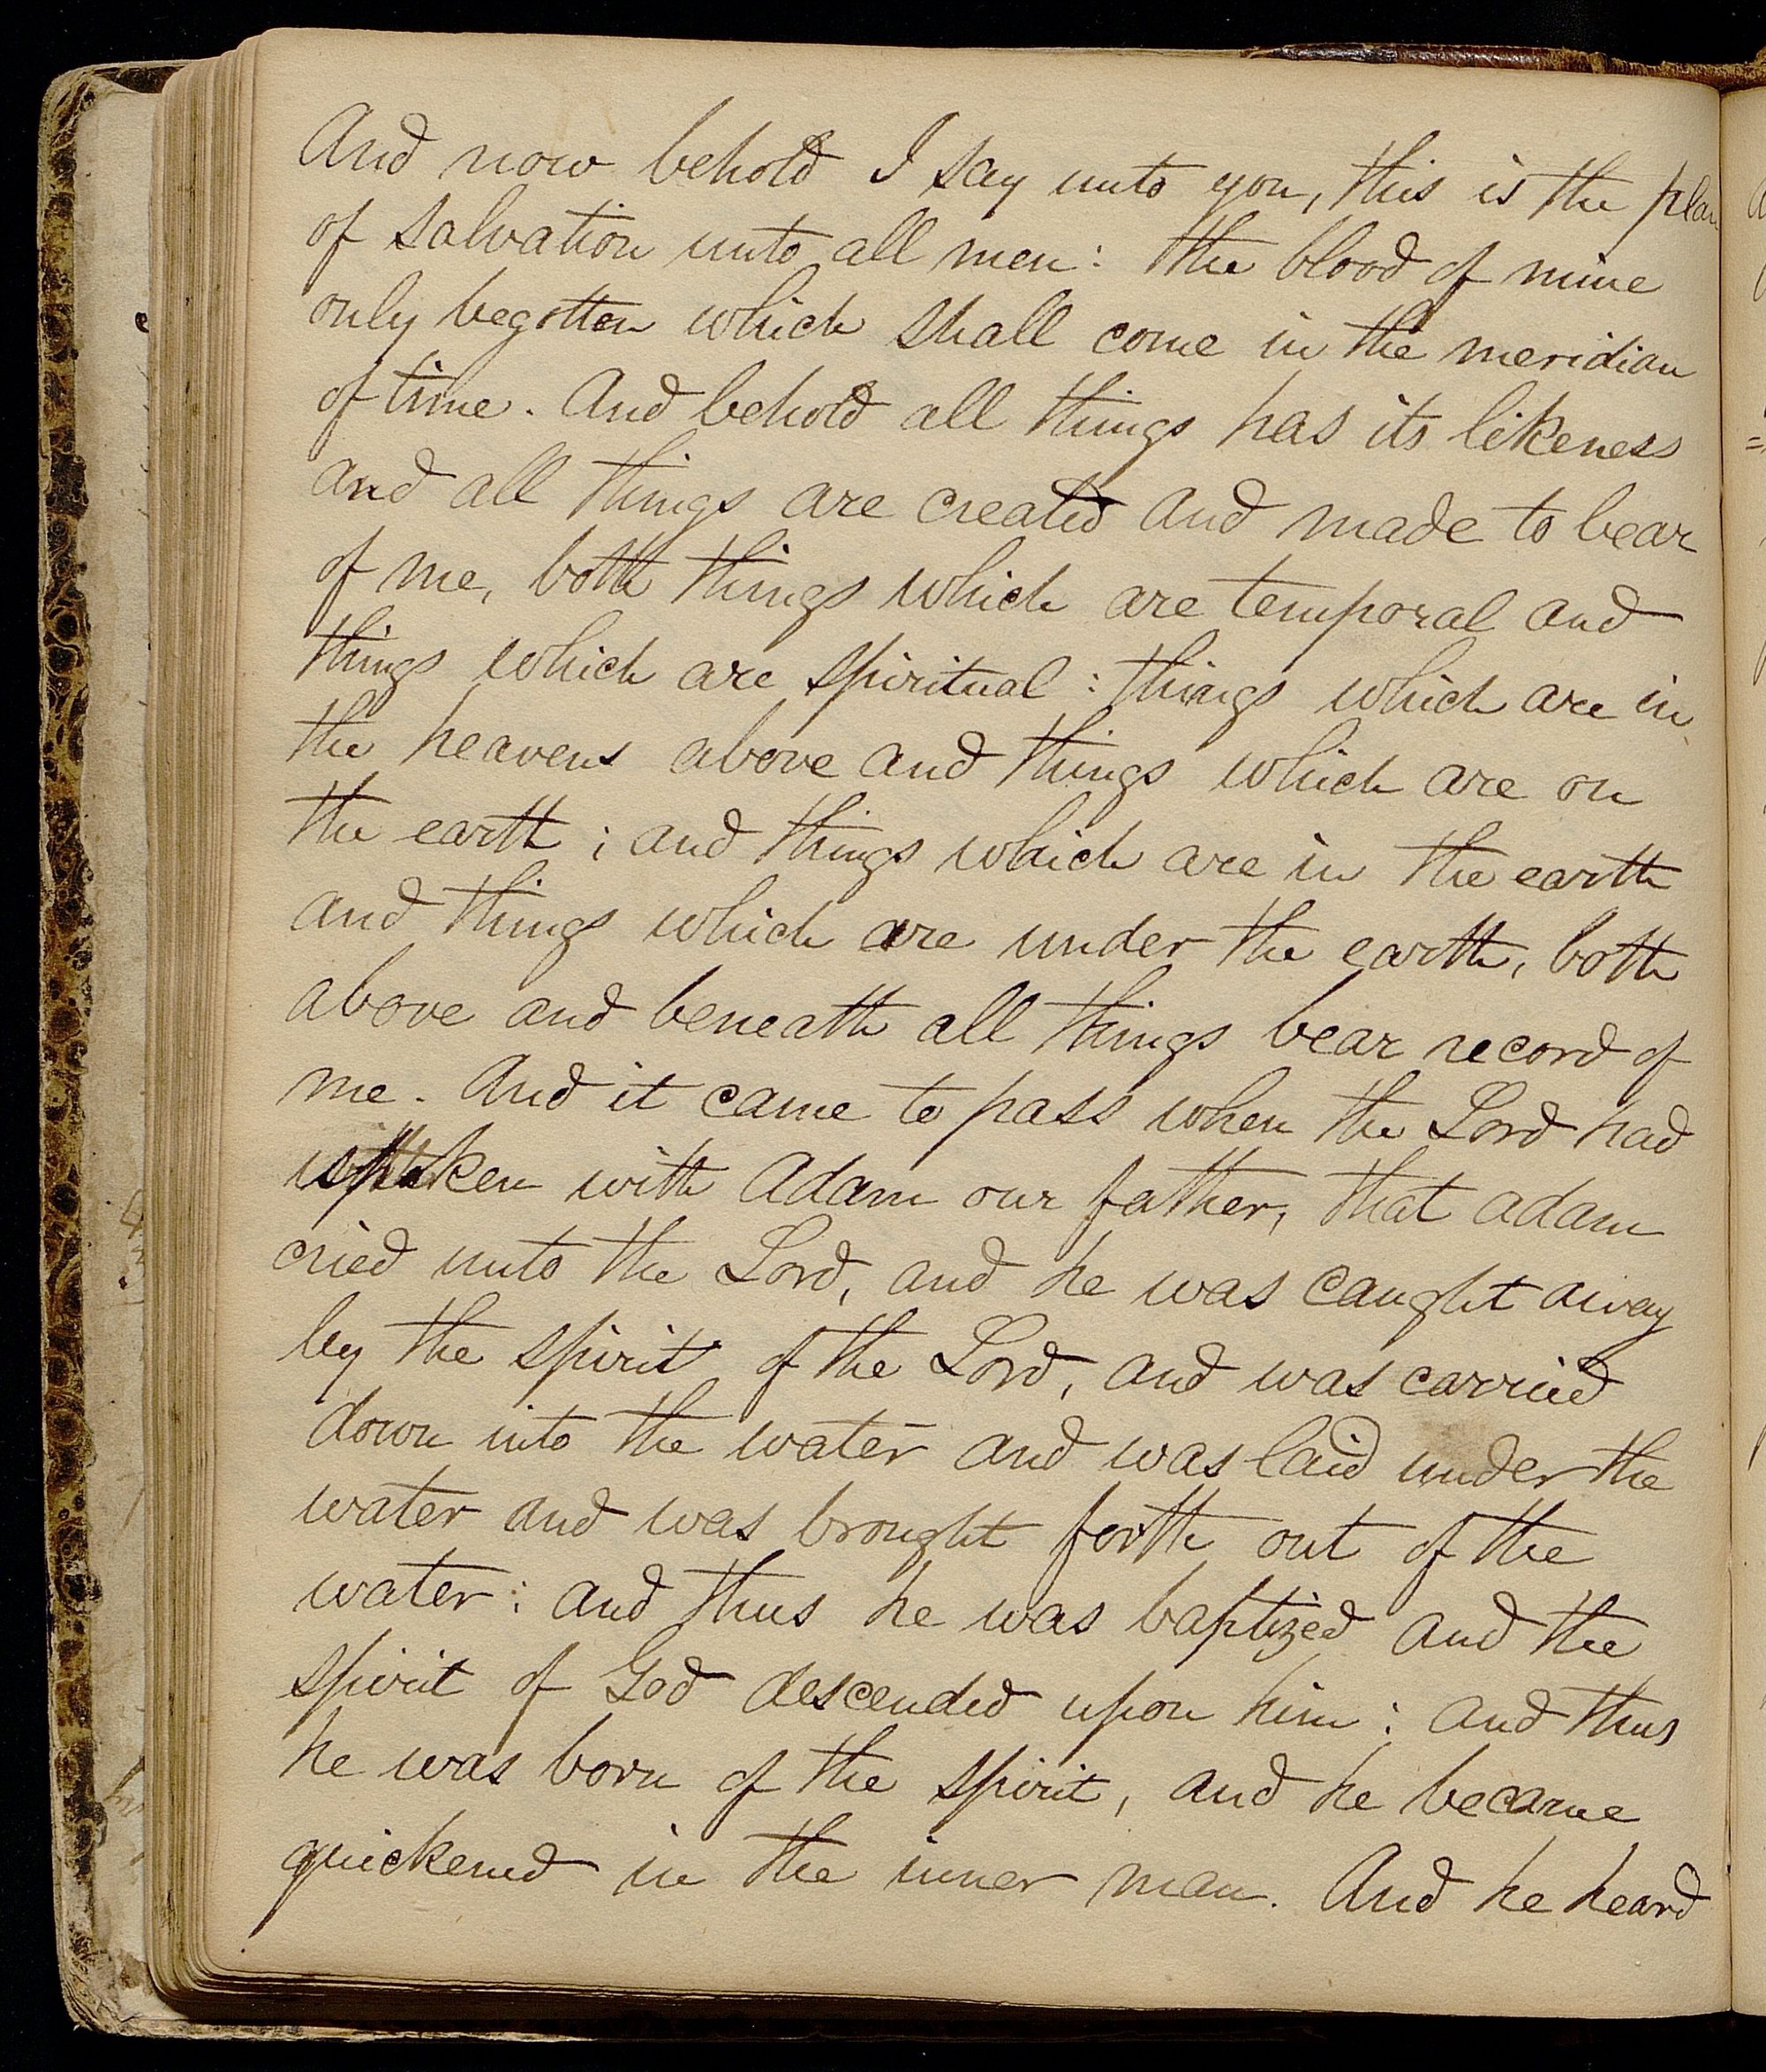 And now behold I say unto you, this is the plan
of salvation unto all men: the blood of mine
only begotten which shall come in the meridian
of time. And behold all things has its likeness
and all things are created and made to bear
of me, both things which are temporal and
things which are spiritual: things which are in
the heavens above and things which are on
the earth; and things which are in the earth
and things which are under the earth, both
above and beneath all things bear record of
me. And it came to pass when the Lord had
spoken with Adam our father, that adam
cried unto the Lord, and he was caught away
by the spirit of the Lord, and was carried
down into the water and was laid under the
water and was brought forth out of the
water: and thus he was baptized and the
spirit of God descended upon him: and thus
he was born of the spirit, and he became
quickened in the inner man. And he heard